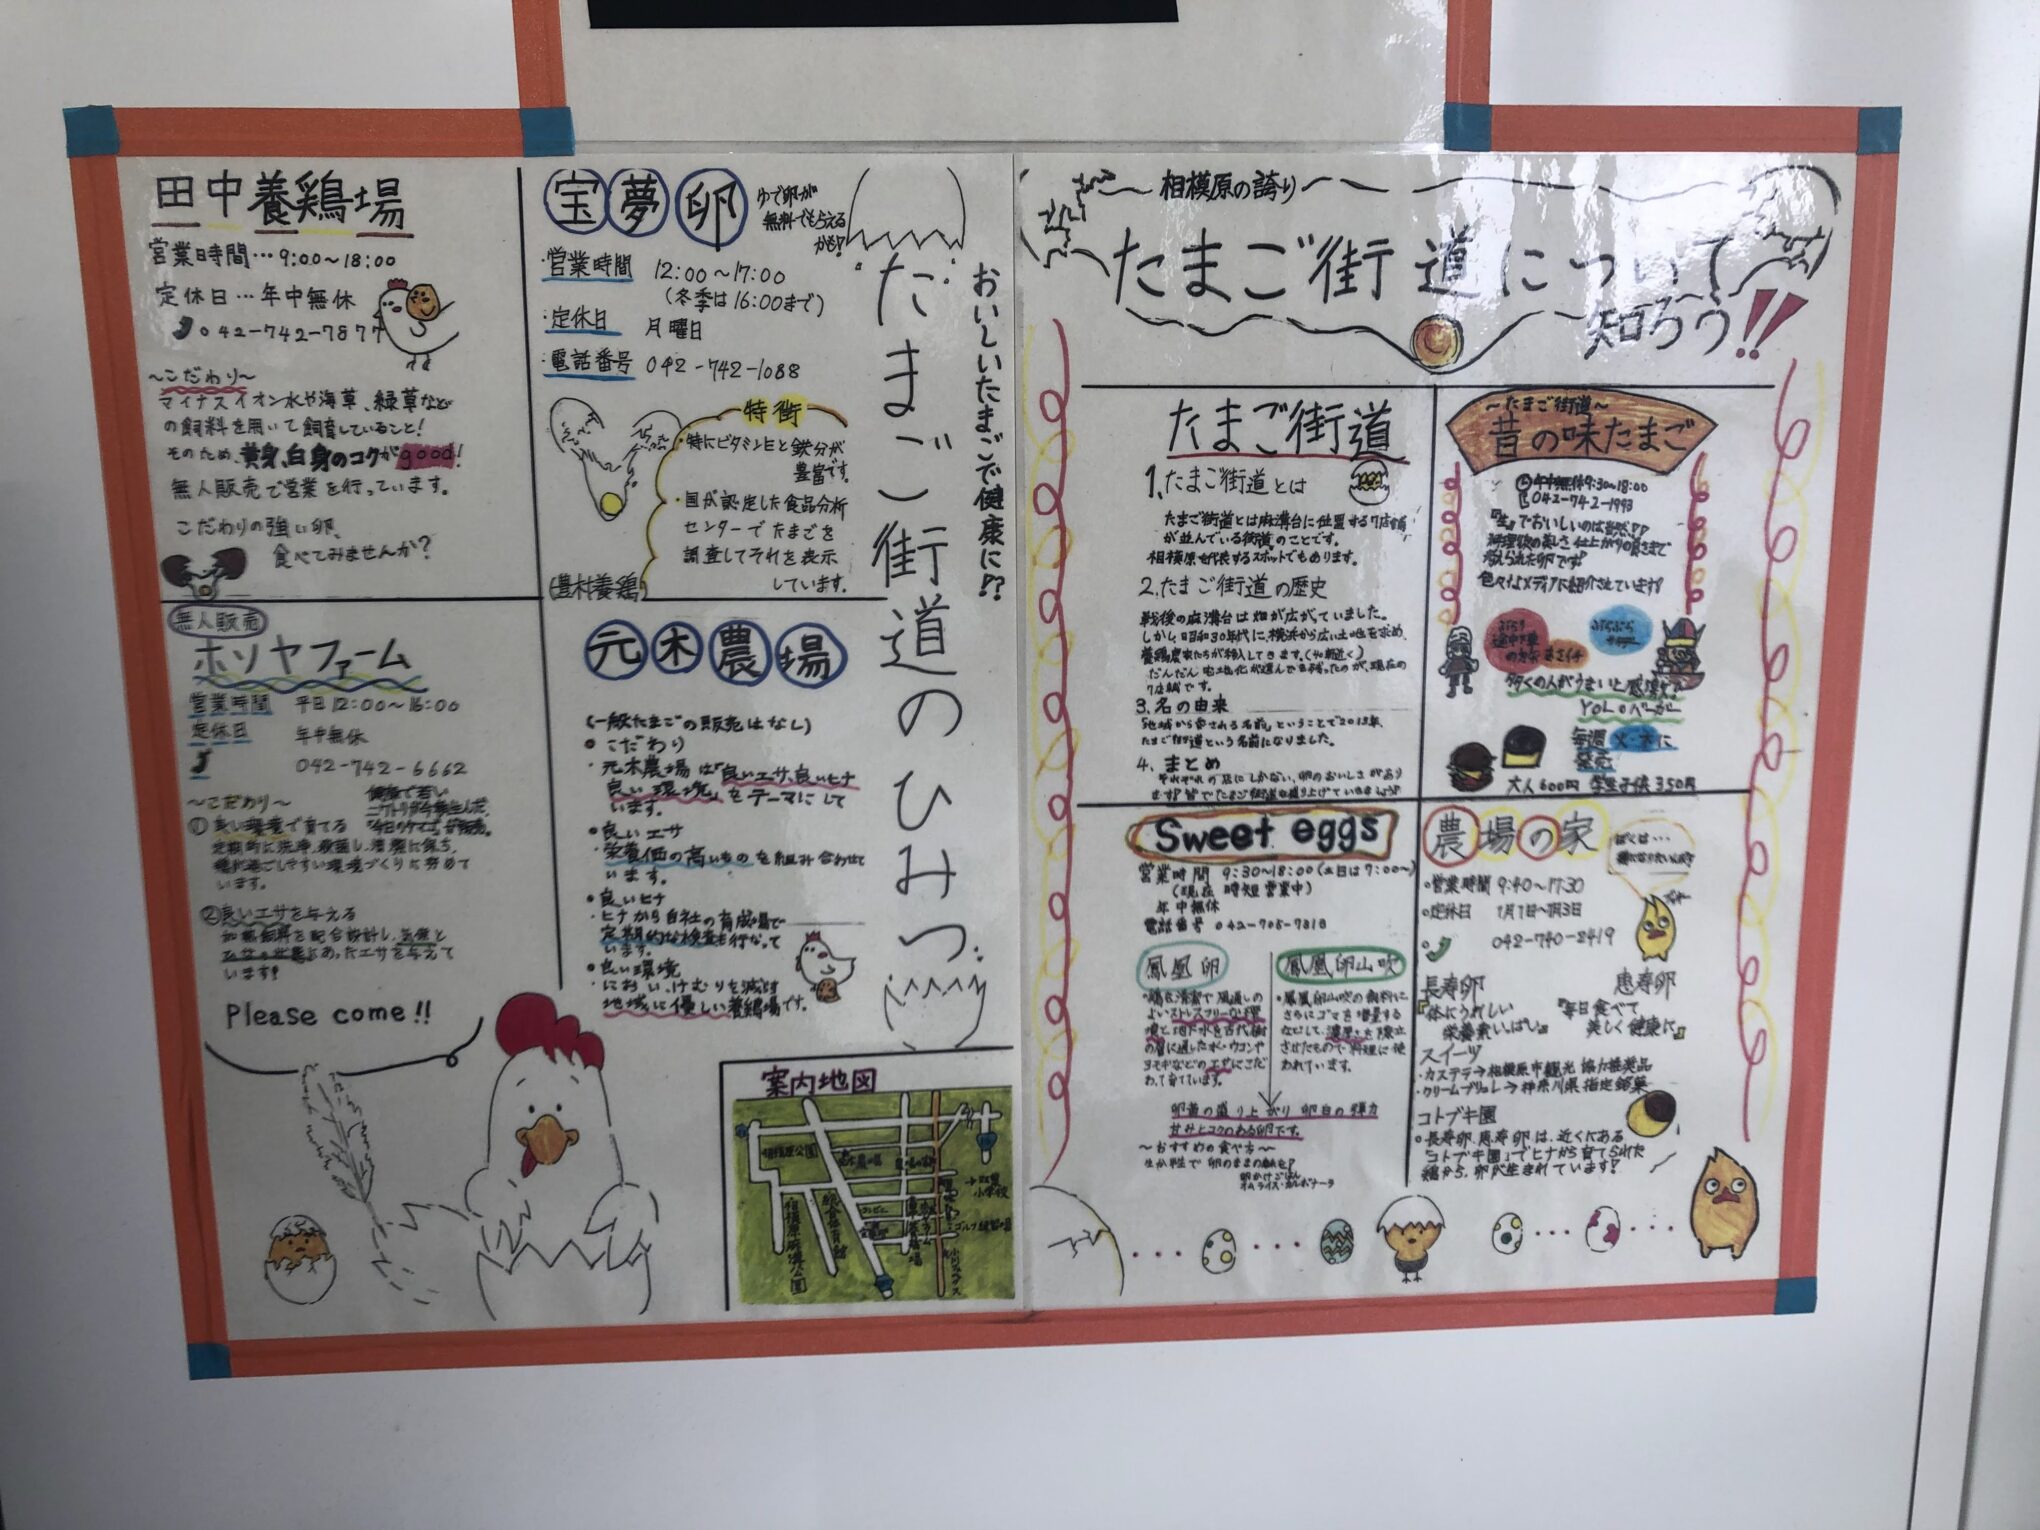 田中養鶏場
営業時間…9:00～18:00
定休日…年中無休
042-742-7877
～こだわり～
マイナスイオン水や海草、緑草など
の飼料を用いて飼育していること!
そのため、黄身、白身のコクがgood!
無人販売で営業を行っています。
こだわりの強い卵、
食べてみませんか?
無人販売
ホソヤファーム
営業時間 平日12:00～16:00
定休日 年中無休
042-742-6662
～こだわり～
①良い環境で育てる
定期的に洗浄、殺菌し、清潔に保ち、
環境づくりに努めて
います。
②良いエサを与える
配合設計し、気候と
あったエサを与えて
います!
Please come!!
宝夢卵
ゆで卵が
無料でもらえる
かも!
・営業時間 12:00～17:00
(冬季は16:00まで)
・定休日 月曜日
・電話番号 042-742-1088
特徴
・特にビタミンEと鉄分が
豊富です。
・国が認定した食品分析
センターでたまごを
調査してそれを表示
しています。
(豊村養鶏)
元木農場
(一般たまごの販売はなし)
・こだわり
・元木農場は「良いエサ、良いヒナ
良い環境」をテーマにして
います。
・良いエサ
・栄養価の高いものを組み合わせて
います。
・良いヒナ
・ヒナから自社の育成場で
定期的な検査も行なって
います。
・良い環境
・におい、けむりを減らす
地域に優しい養鶏場です。
おいしいたまごで健康に!?
たまご街道のひみつ
案内地図
相模原公園
相模原麻溝公園
総合体育館
小学校
～相模原の誇り～
たまご街道について
知ろう!!
たまご街道
1、たまご街道とは
たまご街道とは麻溝台に位置する7店舗
が並んでいる街道のことです。
相模原を代表するスポットでもあります。
2.たまご街道の歴史
戦後の麻溝台は畑が広がっていました。
しかし昭和30年代に、横浜から広い土地を求め、
養鶏農家たちが移入してきます。(40軒近く)
だんだん宅地化が進んで
7店舗です。
3.名の由来
「地域から愛される名前」ということで2013年、
たまご街道という名前になりました。
4、まとめ
それぞれの店にしかない、卵のおいしさがあり
ます!皆でたまご街道を盛り上げていきましょう!
～たまご街道～
昔の味たまご
年中無休9:30～18:00
042-742-1993
『生』でおいしいのは当然!!
考えられた卵です!
色々なメディアに紹介されています!
多くの人がうまいと
YOLOバーガー
毎週火・木に
発売
大人600円 学生子供350円
Sweet eggs
営業時間 9:30～18:00(土日は7:00～)
(現在 時短営業中)
年中無休
電話番号 042-705-7318
鳳凰卵
・鶏を清潔で風通しの
よいストレスフリーな環
境と地下水を古代樹
の層に通した水・ウコンや
ヨモギなどのエサにこだ
わって育てています。
鳳凰卵山吹
・鳳凰卵山吹の飼料に
さらにゴマを増量する
などして、濃厚さを際立
させたもので料理に使
われています。
卵黄の盛り上がり 卵白の弾力
甘みとコクのある卵です。
～おすすめの食べ方～
卵かけごはん
オムライス・カルボナーラ
農場の家
ぼくは…
・営業時間 9:40～17:30
・定休日 1月1日～1月3日
042-740-2419
長寿卵
『体にうれしい
栄養素いっぱい』
恵寿卵
『毎日食べて
美しく健康に』
スイーツ
・カステラ→相模原市観光協力推奨品
・クリームブリュレ→神奈川県指定銘菓
コトブキ園
○長寿卵、恵寿卵は、近くにある
「コトブキ園」でヒナから育てられた
鶏から、卵が生まれています!